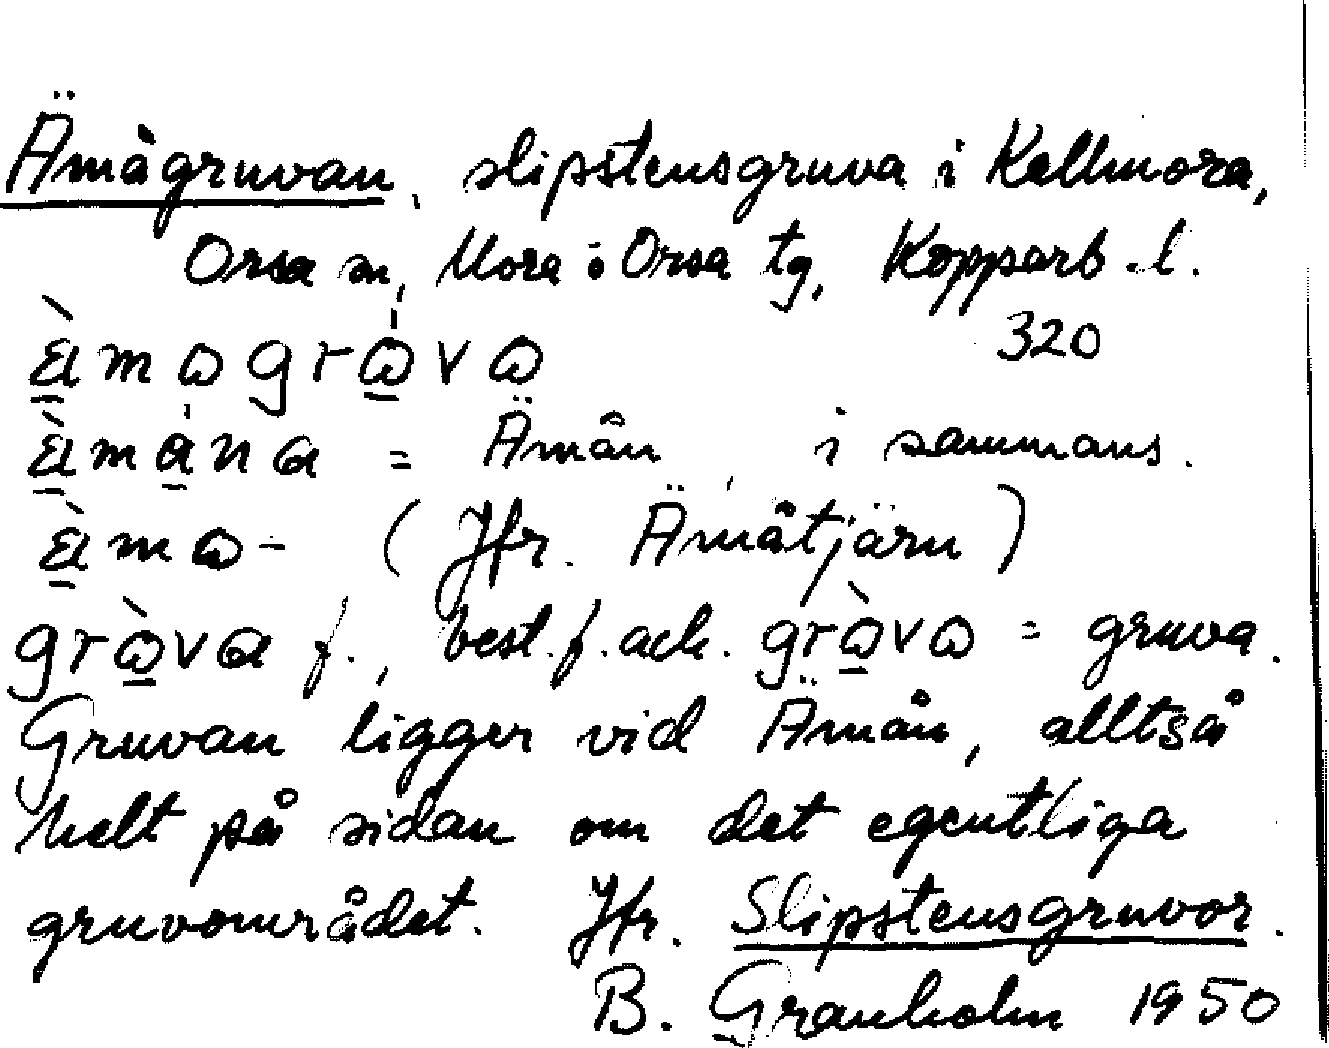 Ämågruvan, slipstensgruva i Kallmora,
Orsa sn, Mora o Orsa tg, Kopparb. l.
320
ä̀mɷgrɷ̀vɷ
ä̀mána = Ämån, i sammans.
ä̀mɷ- (Jfr. Ämåtjärn)
grɷ̀va f., best. f. ack. grɷ̀vɷ = gruva.
Gruvan ligger vid Ämån, alltså
helt på sidan om det egentliga
gruvområdet. Jfr. Slipstensgruvor.
B. Granholm 1950